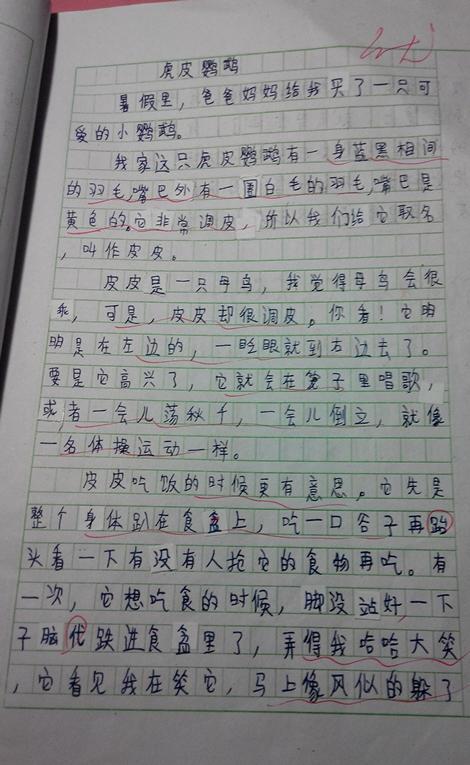 虎皮鹦鹉
暑假里，爸爸妈妈给我买了一只可
爱的小鹦鹉。
我家这只虎皮鹦鹉有一身蓝黑相间
的羽毛，嘴巴外有一圈白毛的羽毛，嘴巴是
黄色的。它非常调皮，所以我们给它取名
，叫作皮皮。
皮皮是一只母鸟，我觉得母鸟会很
乖，可是，皮皮却很调皮。你看！它明
明是在左边的，一眨眼就到右边去了。
要是它高兴了，它就会在笼子里唱歌，
或者一会儿荡秋千，一会儿倒立，就像
一名体操运动一样。
皮皮吃饭的时候更有意思。它先是
整个身体趴在食盒上，吃一口谷子再
头看一下有没有人抢它的食物再吃。有
一次，它想吃食的时候，脚没站好，一下
子脑代跌进食盒里了，弄得我哈哈大笑
，它看见我在笑它，马上像风似的躲了